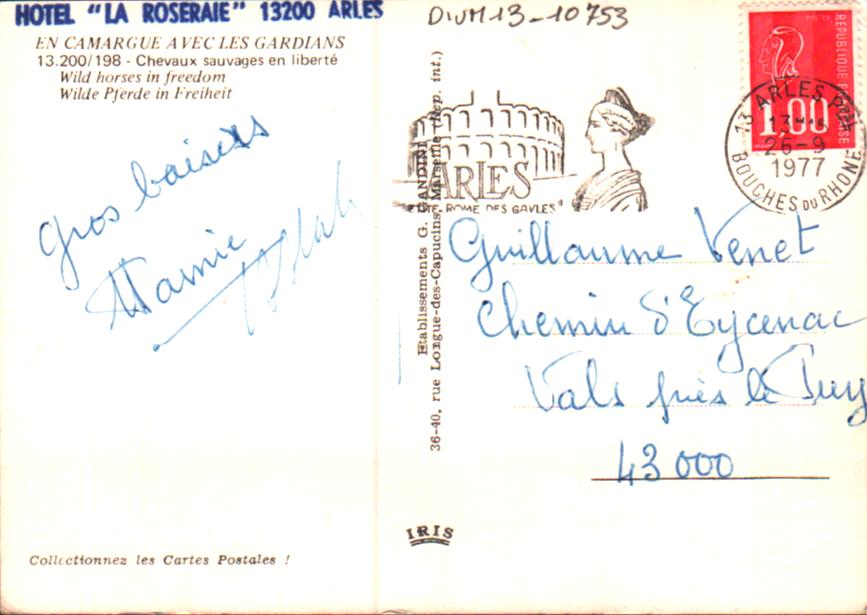 HOTEL "LA ROSERAIE" 13200 ARLES
EN CAMARGUE AVEC LES GARDIANS
13.200/198 - Chevaux sauvages en liberté
Wild horses in freedom
Wilde Pferde in Freiheit
Gros baisers
Mamie
Collectionnez les Cartes Postales !
DIVM13-10753
Etablissements G. GANDINI
36-40, rue Longue-des-Capucins, Marseille (Rep. int.)
IRIS
ARLES
ROME DES GAULES"
REPUBLIQUE FRANÇAISE
1,00
13 ARLES
26-9
1977
BOUCHES DU RHONE
Guillaume Venet
Chemin d'Eycenac
Vals près le Puy
43000